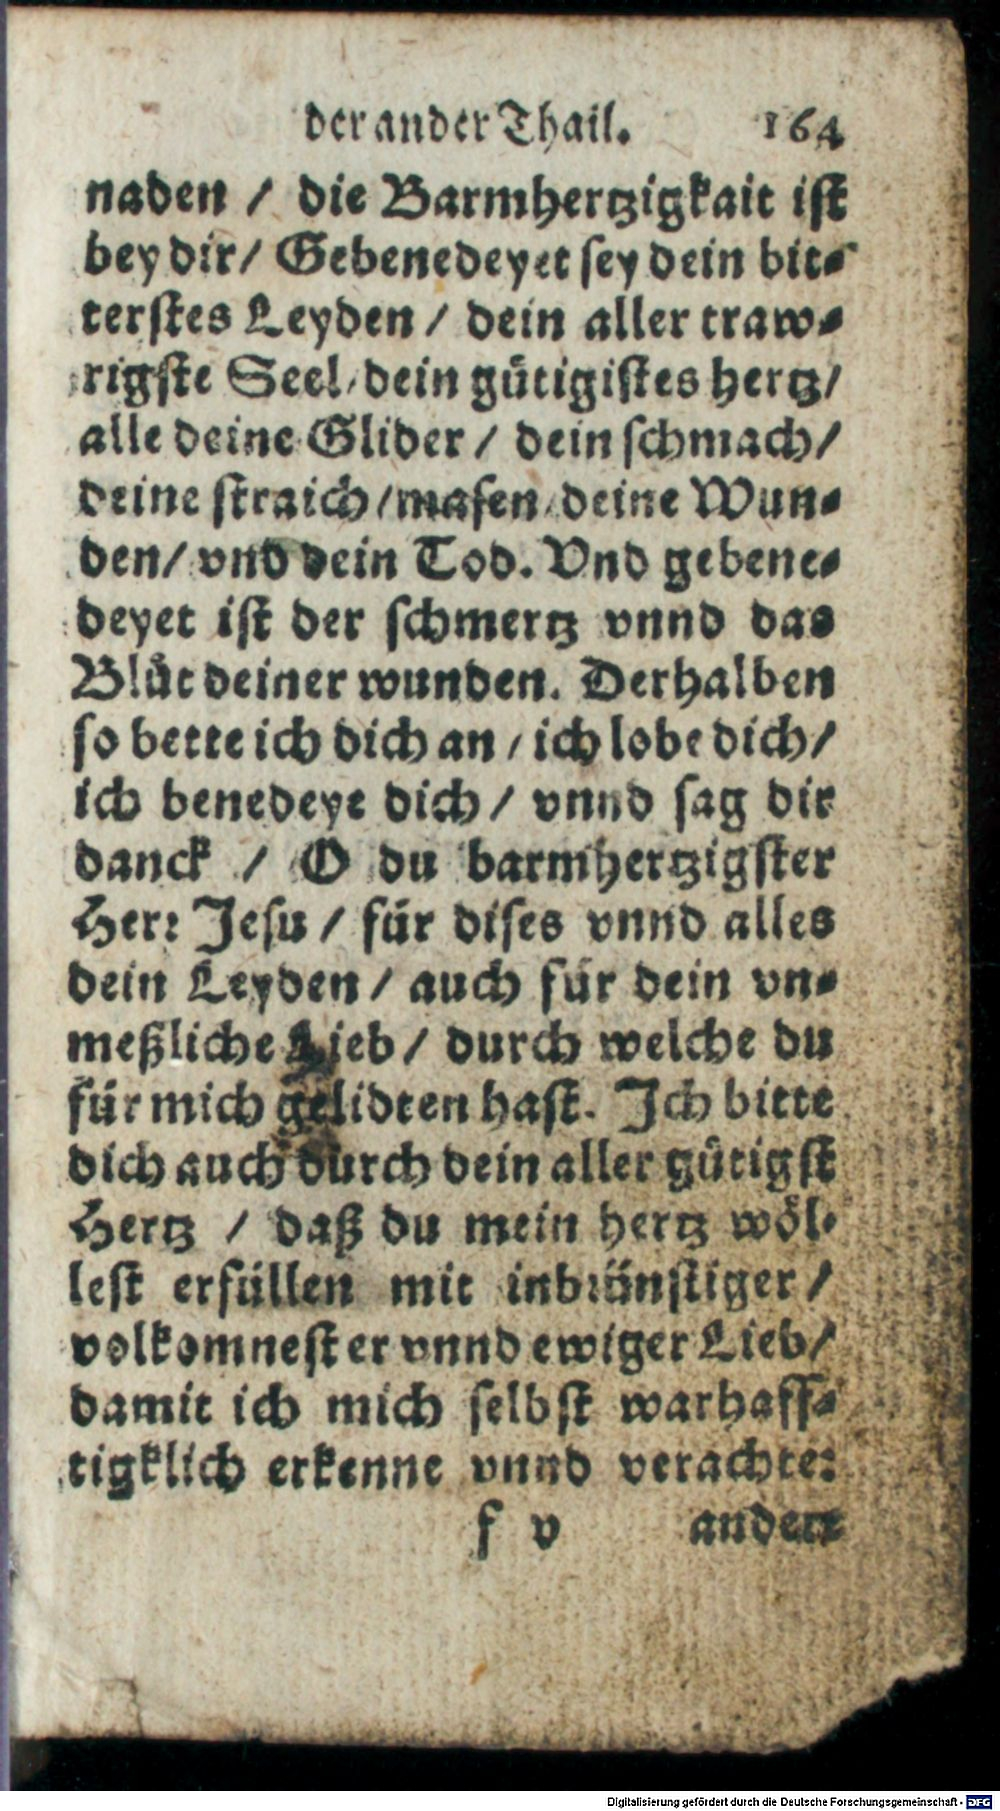 der ander Thail. 164
naden / die Barmhertzigkait ist
bey dir / Gebenedeyet sey dein bit-
terstes Leyden / dein aller traw-
rigste Seel / dein gütigistes hertz /
alle deine Glider / dein schmach /
deine straich / masen / deine Wun-
den / vnd dein Tod. Vnd gebene-
deyet ist der schmertz vnnd das
Blůt deiner wunden. Derhalben
so bette ich dich an / ich lobe dich /
ich benedeye dich / vnnd sag dir
danck / O du barmhertzigster
Herr Jesu / für dises vnnd alles
dein Leyden / auch für dein vn-
meßliche Lieb / durch welche du
für mich gelidten hast. Ich bitte
dich auch durch dein aller gütigst
Hertz / daß du mein hertz wöl-
lest erfüllen mit inbrünstiger /
volkomnester vnnd ewiger Lieb /
damit ich mich selbst warhaff-
tigklich erkenne vnnd verachte:
f v andere
Digitalisierung gefördert durch die Deutsche Forschungsgemeinschaft - DFG